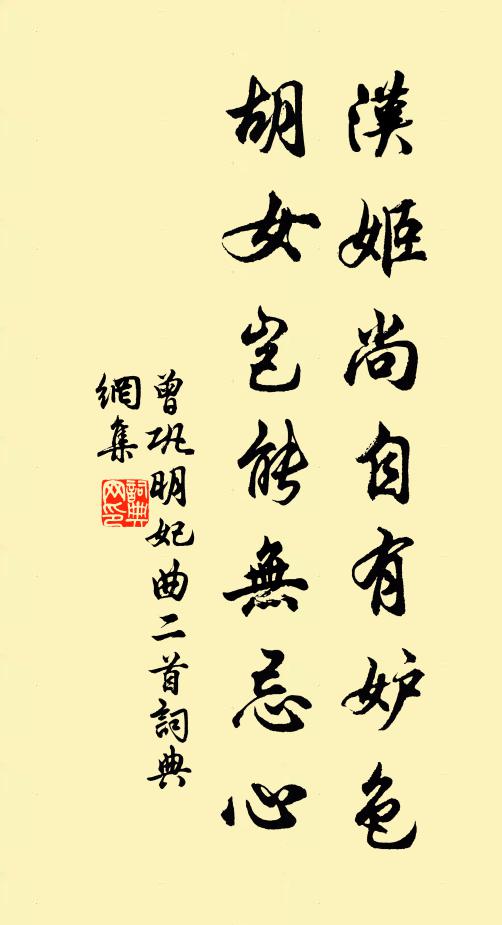 漢姬尚自有妒色
胡女豈能無忌心
曾巩明妃曲二首詞典
網集
詞典
网印